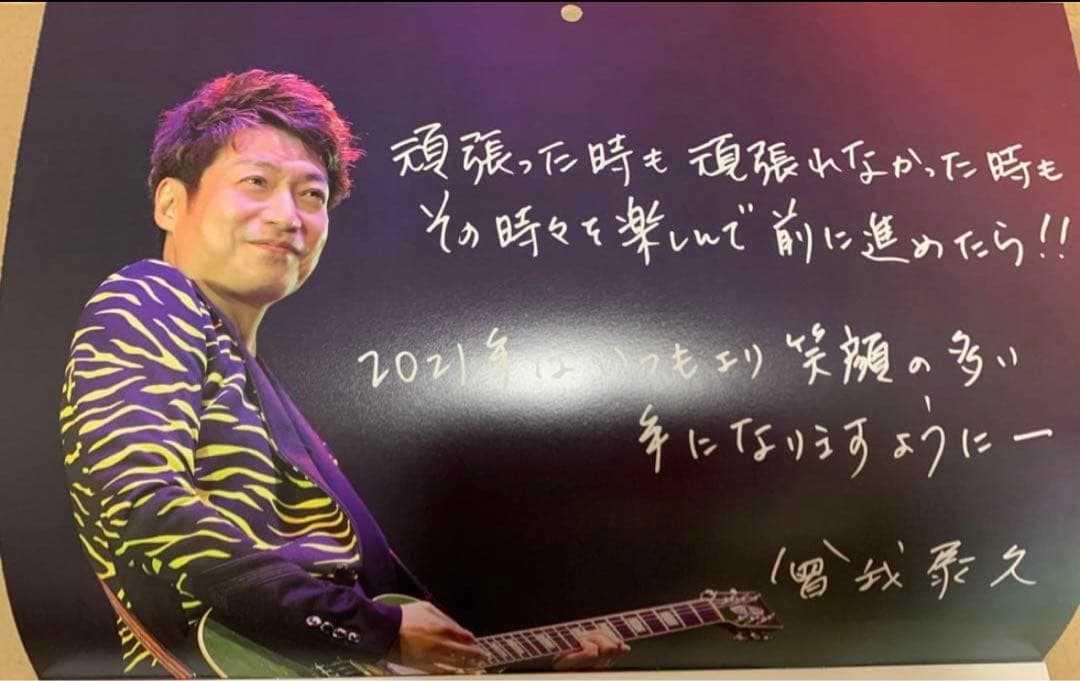 頑張った時も頑張れなかった時も
その時々を楽しんで前に進めたら!!
2021年はいつもより笑顔の多い
年になりますようにー
曽我泰久